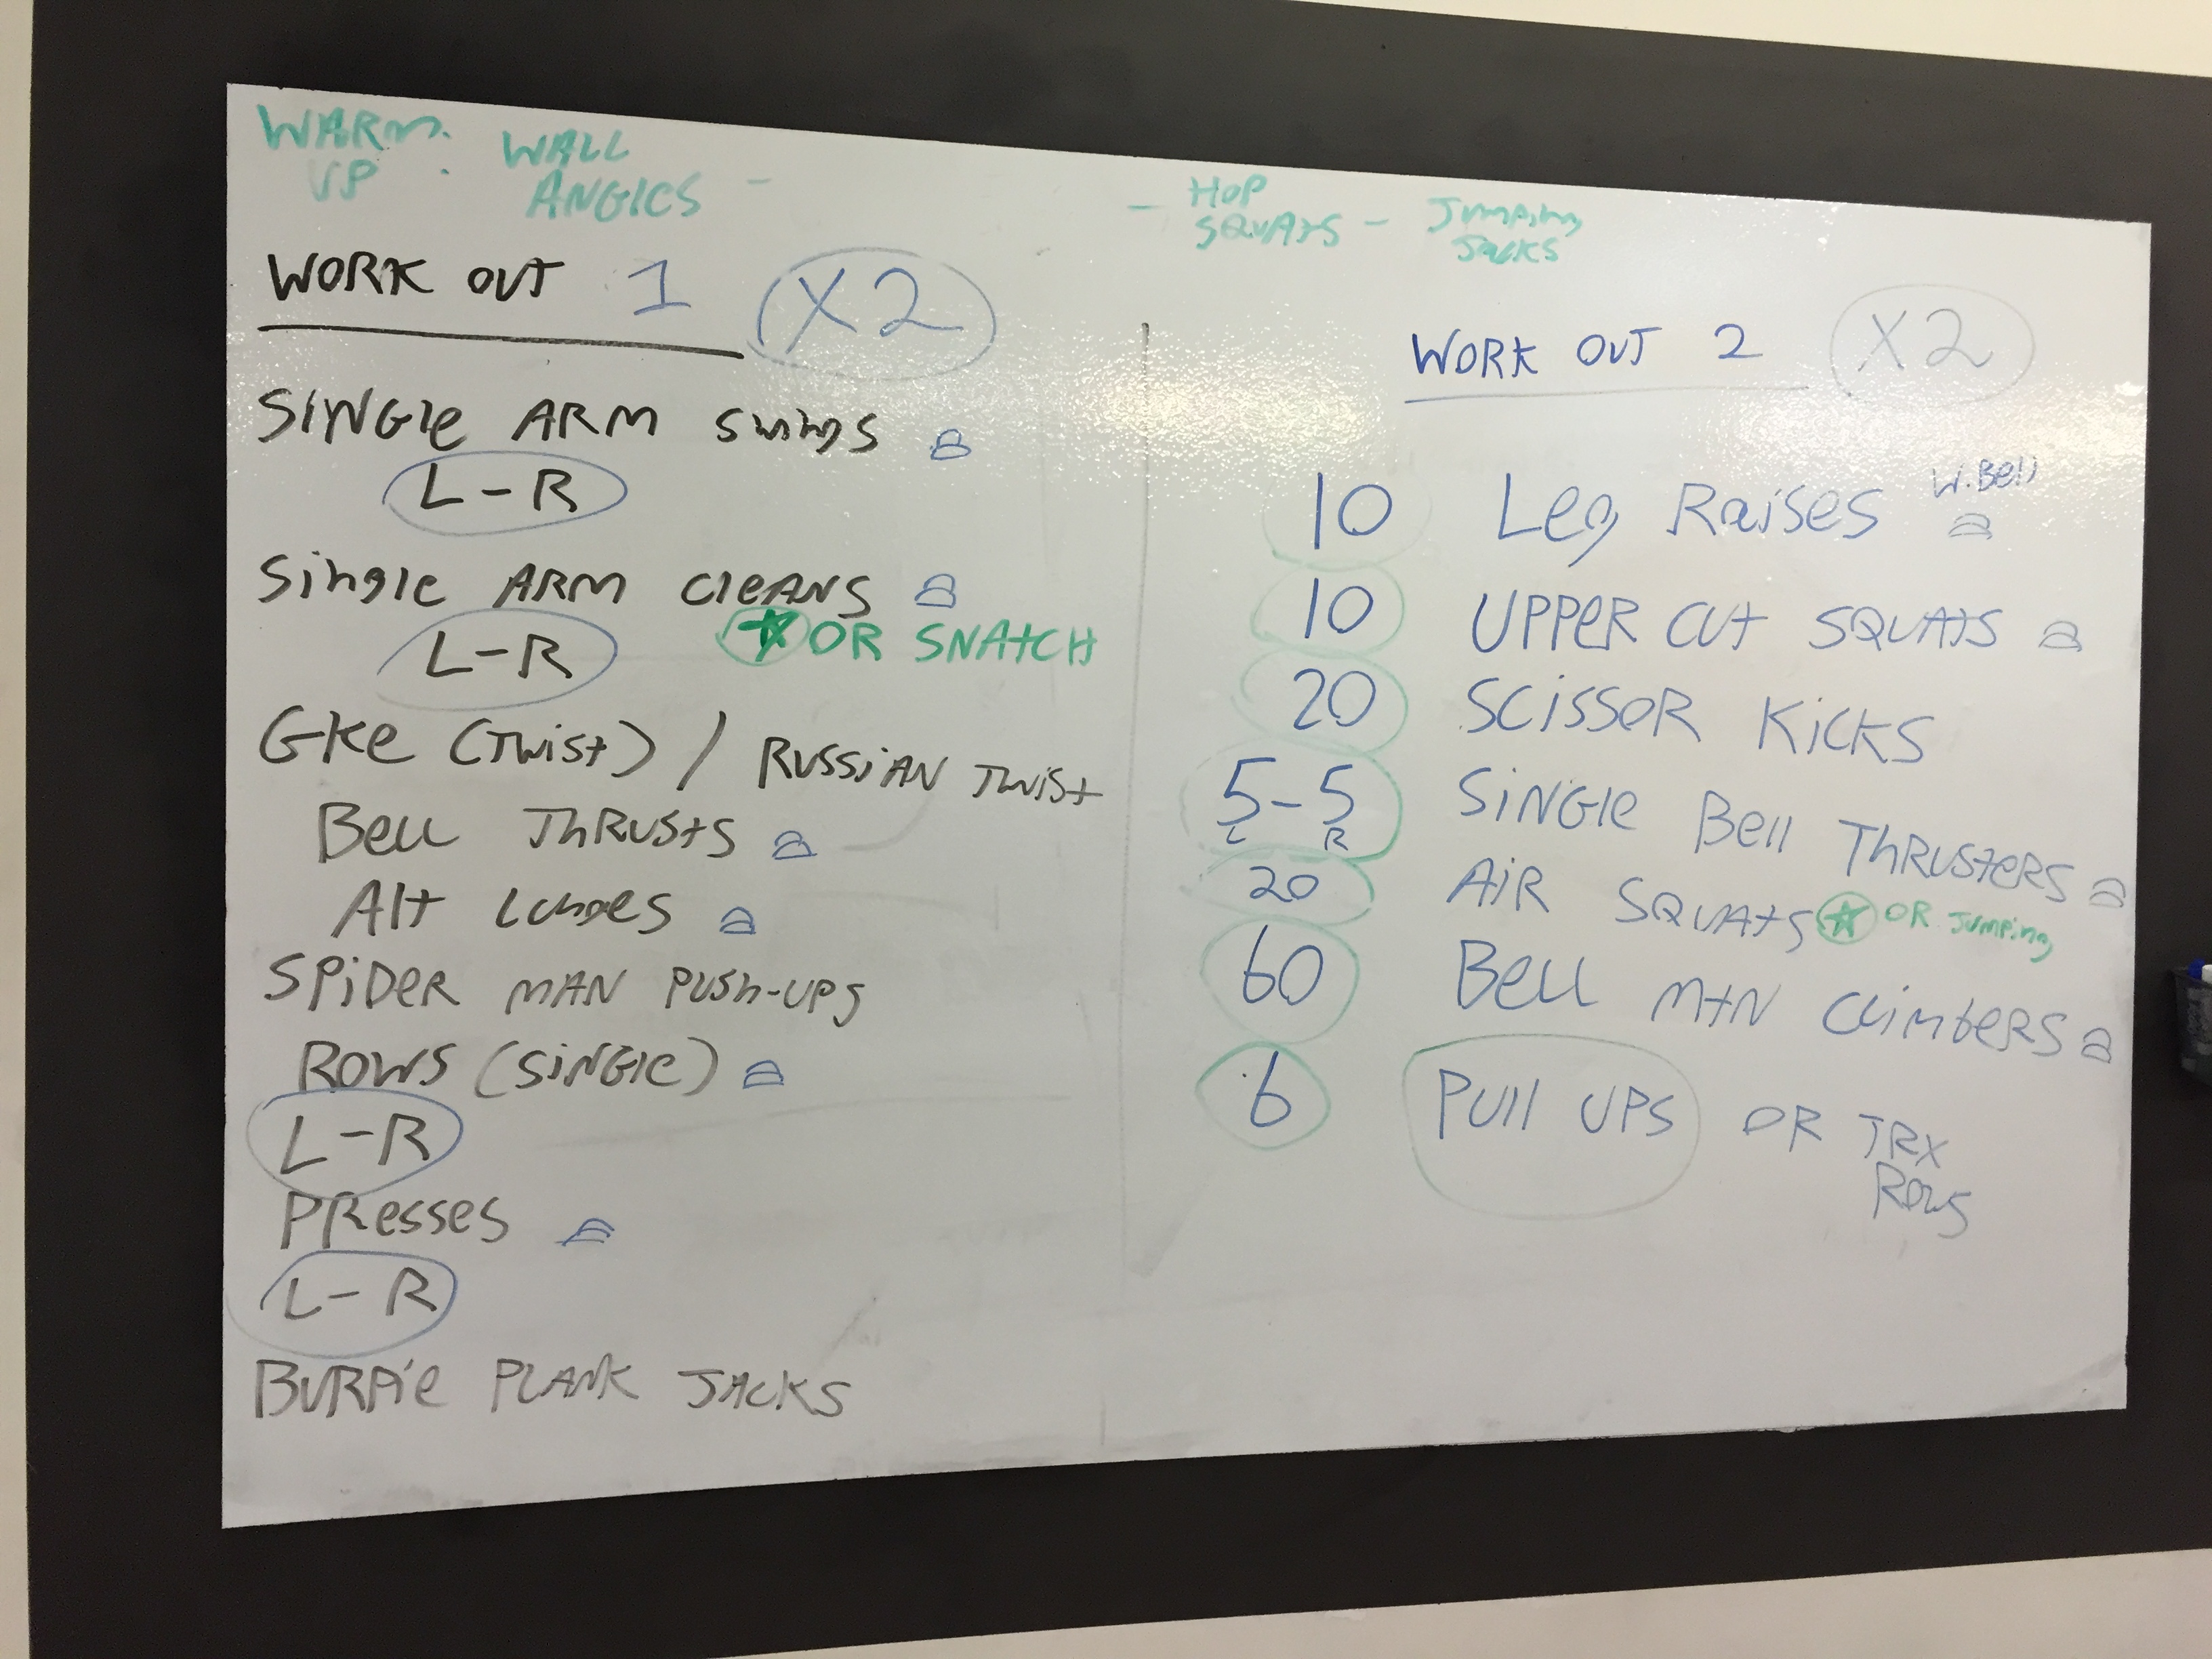 WARM UP : WALL ANGICS - - HOP SQUATS - Jumping Jacks
WORK OUT 1 X2
SINGle ARM swings
L-R
Single ARM CleANS
L-R OR SNATCH
GKe (Twist) / RUSSiAN Twist
Bell ThRUSTS
Alt Lunges
SPiDeR MAN PUSh-UPS
ROWS (SiNGle)
L-R
PResses
L-R
BURPie PLANK JACKS
WORK OUT 2 X2
10 Leg Raises W.Bell
10 UPPeR CUt SQUATS
20 SCiSSOR KiCKS
5-5 SiNGle Bell ThRUSTeRS
L R
20 AiR SQUATS OR Jumping
60 Bell MtN ClimbeRS
6 PUll UPS OR TRX
ROWS